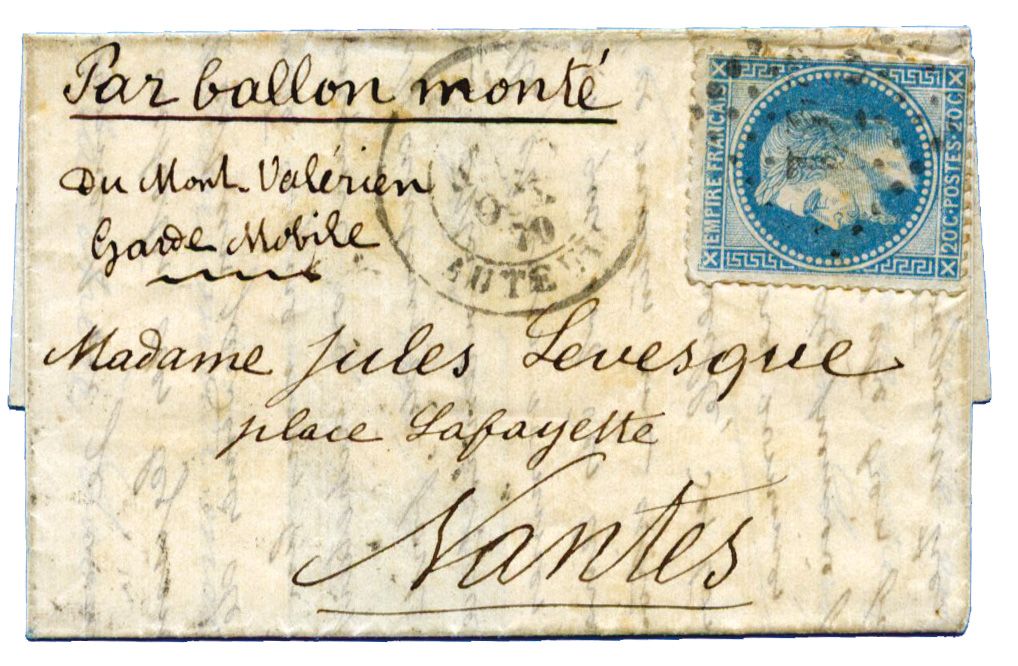 Par ballon monté
Du Mont-Valérien
Garde Mobile
Madame Jules Levesque
place Lafayette
Nantes
EMPIRE FRANCAIS
20C·POSTES·20C
70
AUTEUIL